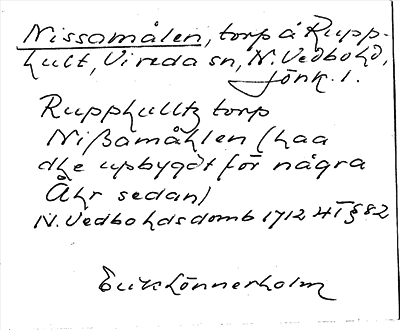 Nissamålen, torp å Rupp-
hult, Vireda sn, N. Vedbo hd,
Jönk. l.
Rupphulltz torp
Nißamåhlen (haa
dhe upbygdt för några
Åhr sedan)
N. Vedbo hds domb 1712 4T § 82
Erik Lönnerholm